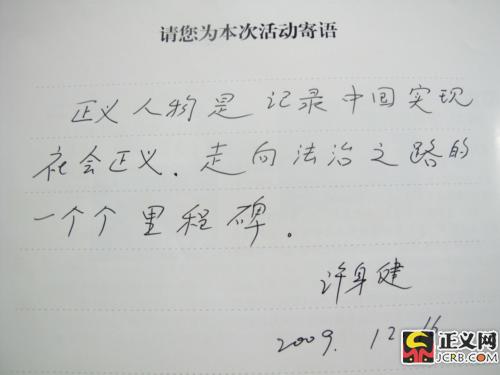 请您为本次活动寄语
正义人物是记录中国实现
社会正义．走向法治之路的
一个个里程碑．
许身健
2009. 12 16
正义网
JCRB.com